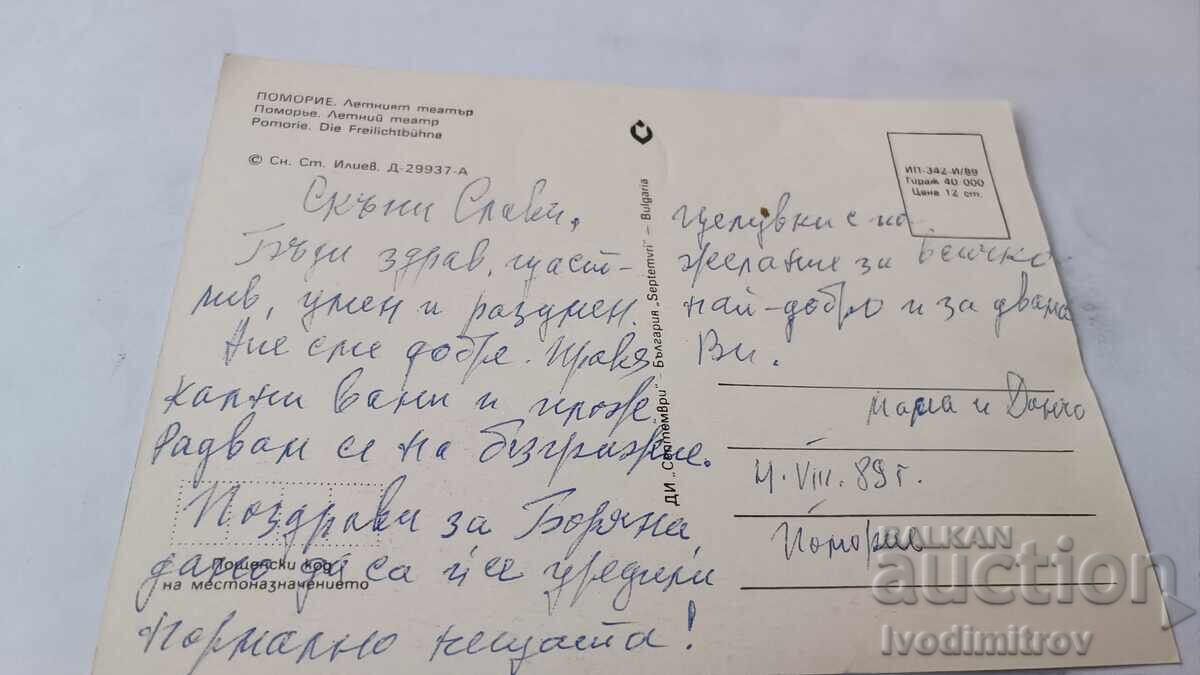 ПОМОРИЕ. Летният театър
Поморье. Летний театр
Pomorie. Die Freilichtbühne
© Сн. Ст. Илиев. Д-29937-А
ИП-342-И/89
Тираж 40 000
Цена 12 ст.
ДИ „Септември" – България „Septemvri" – Bulgaria
Скъпи Слави,
Бъди здрав, щаст-
лив, умен и разумен.
Ние сме добре. Правя
кални вани и
Радвам се на безгрижие.
Поздрави за Боряна,
дано да са й се уредили
нормално нещата!
Целувки с по-
желание за всичко
най-добро и за двама
Ви.
мама и Данчо
4.VIII.89 г.
Поморие
Пощенски код
на местоназначението
BALKAN
auction
Ivodimitrov